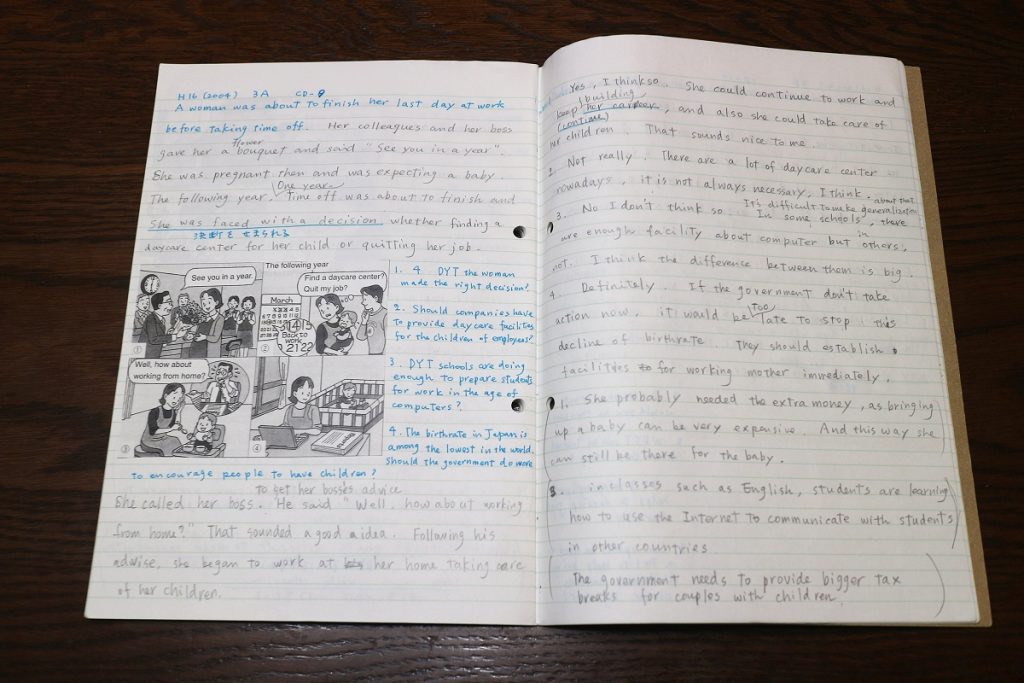 H16 (2004) 3A CD-8
A woman was about to finish her last day at work
before taking time off. Her colleagues and her boss
flower
gave her a bouquet and said "See you in a year".
She was pregnant then and was expecting a baby.
One year
The following year, Time off was about to finish and
She was faced with a decision, whether finding a
決断をせまられる
daycare center for her child or quitting her job.
See you in a year.
The following year
Find a daycare center?
Quit my job?
March
Back to
work
21 22
①
②
Well, how about
working from home?
③
④
1. 4 DYT the woman
made the right decision?
2. Should companies have
to provide day care facilities
for the children of employees?
3. DYT schools are doing
enough to prepare students
for work in the age of
computers?
4. The birthrate in Japan is
among the lowest in the world.
Should the government do more
to encourage people to have children?
to get her bosses advice
She called her boss. He said "Well, how about working
from home?" That sounded a good a idea. Following his
advise, she began to work at her home taking care
of her children.
Yes, I think so. She could continue to work and
building
keep her career, and also she could take care of
(continue)
her children. That sounds nice to me.
2. Not really. There are a lot of daycare center
nowadays, it is not always necessary, I think.
about that
It's difficult to make generalization
3. No I don't think so. In some schools, there
in
are enough facility about computer but others,
not. I think the difference between them is big.
4. Definitely. If the government don't take
too
action now, it would be late to stop this
decline of birthrate. They should establish
facilities for working mother immediately.
1. She probably needed the extra money, as bringing
up a baby can be very expensive. And this way she
can still be there for the baby.
3. in classes such as English, students are learning
how to use the Internet to communicate with students
in other countries
The government needs to provide bigger tax
breaks for couples with children.